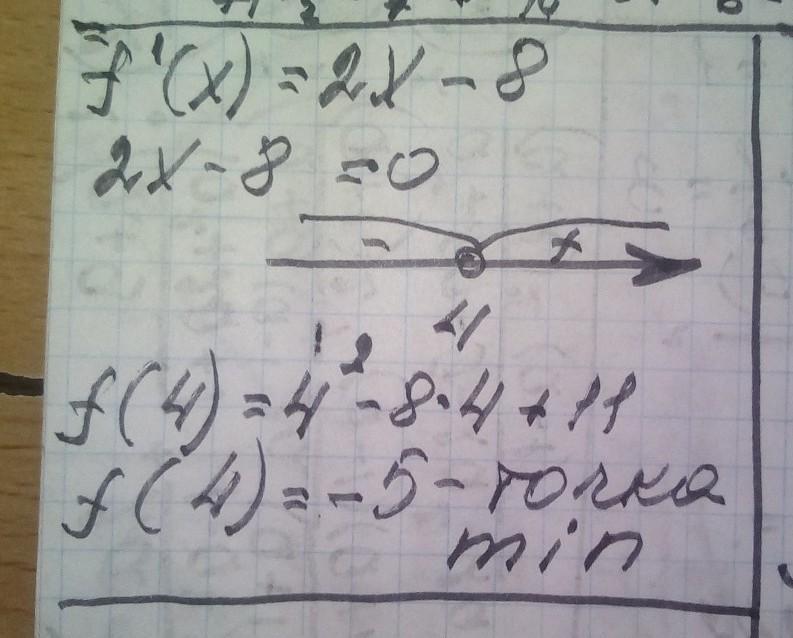 f'(x) = 2x - 8
2x - 8 = 0
- +
4
f(4) = 4² - 8·4 + 11
f(4) = -5 - точка
min